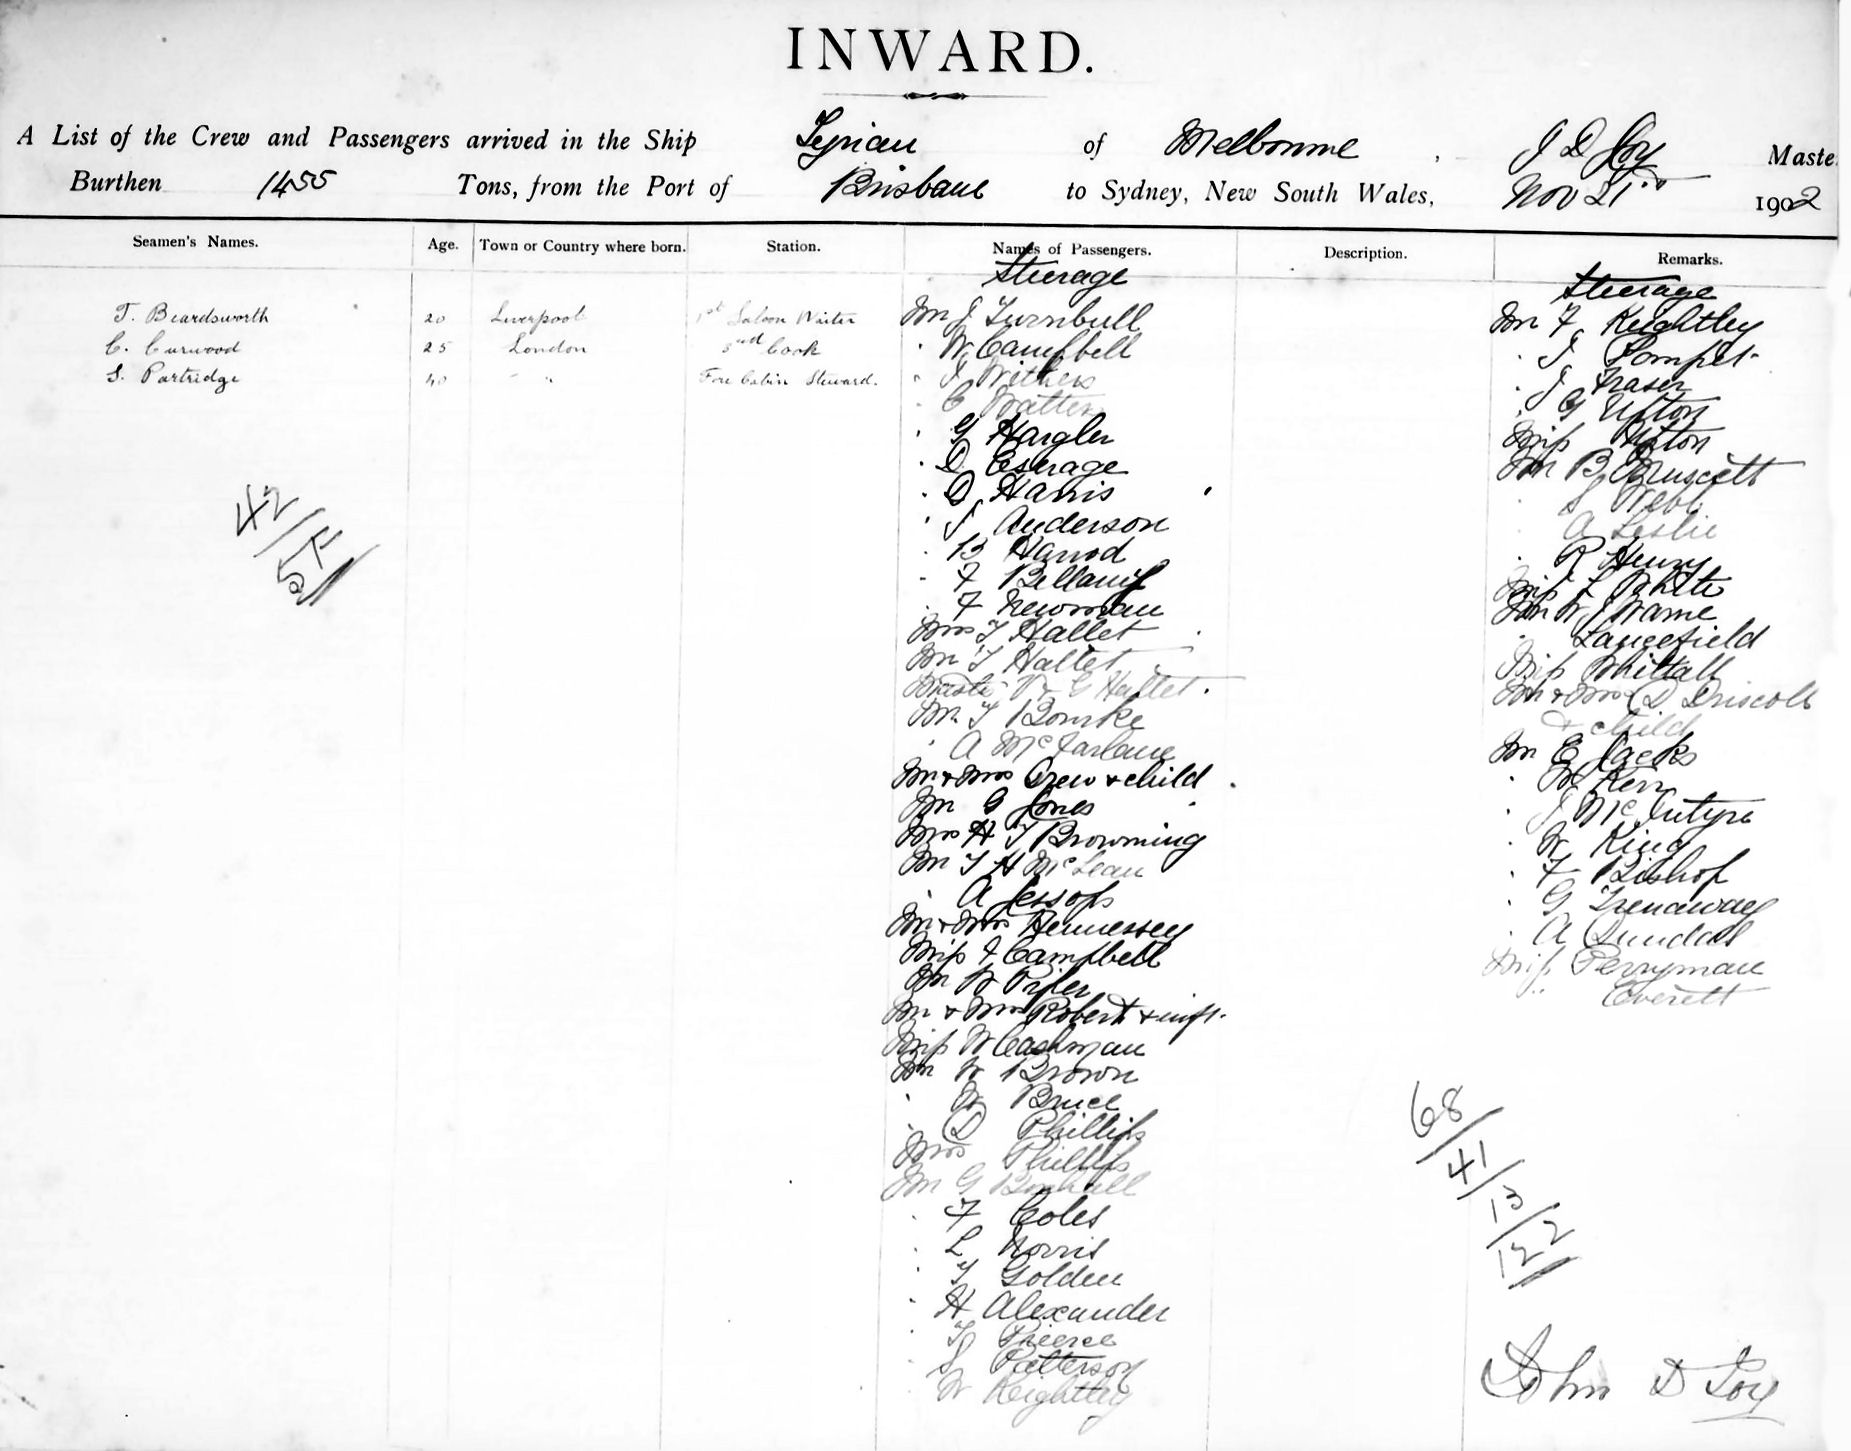 INWARD.
A List of the Crew and Passengers arrived in the Ship Tyrian of Melbourne, J D Joy Maste
Burthen 1455 Tons, from the Port of Brisbane to Sydney, New South Wales, Nov 21st 1902
Seamen's Names. Age. Town or Country where born. Station. Names of Passengers. Description. Remarks.
T. Beardsworth 20 Liverpool 1st Saloon Waiter
C. Curwood 25 London 3rd Cook
S. Partridge 40 " " Fore Cabin Steward.
42/
54
Steerage
Mr J Turnbull
" W Campbell
" J Withers
" C Watters
" G Hargler
" D
" D Harris
" J Anderson
" B Harrod
" F Bellamy
" F Newman
Mrs T Hallet
Mr T Hallet
Master V & G Hallet
Mr T Bourke
" A McFarlane
Mr & Mrs Crew & child
Mr G Jones
Mrs H T Browning
Mr T H McLean
" A Jessop
Mr & Mrs Hennessey
Miss J Campbell
Mr W Piper
Mr & Mrs Robert & inft.
Miss W Cashman
Mr W Brown
" W Bruce
" D Phillips
Mrs Phillips
Mr G
" F Coles
" L Norris
" T Golden
" H Alexander
" T Pierce
" J Patterson
" W Keightley
Steerage
Mr F Keightley
" T
" J Fraser
" G Upton
Miss Upton
Mr B Truscott
" S Webb
" A Leslie
" R Henry
Miss L White
Mr W J Warne
" Langefield
Miss Whittall
Mr & Mrs D Driscoll
& child
Mr E Jacks
" W Kerr
" J McIntyre
" W King
" F Bishop
" G Trenaway
" A Dundas
Miss Perryman
" Everett
68/
41/
13/
122
John D Joy